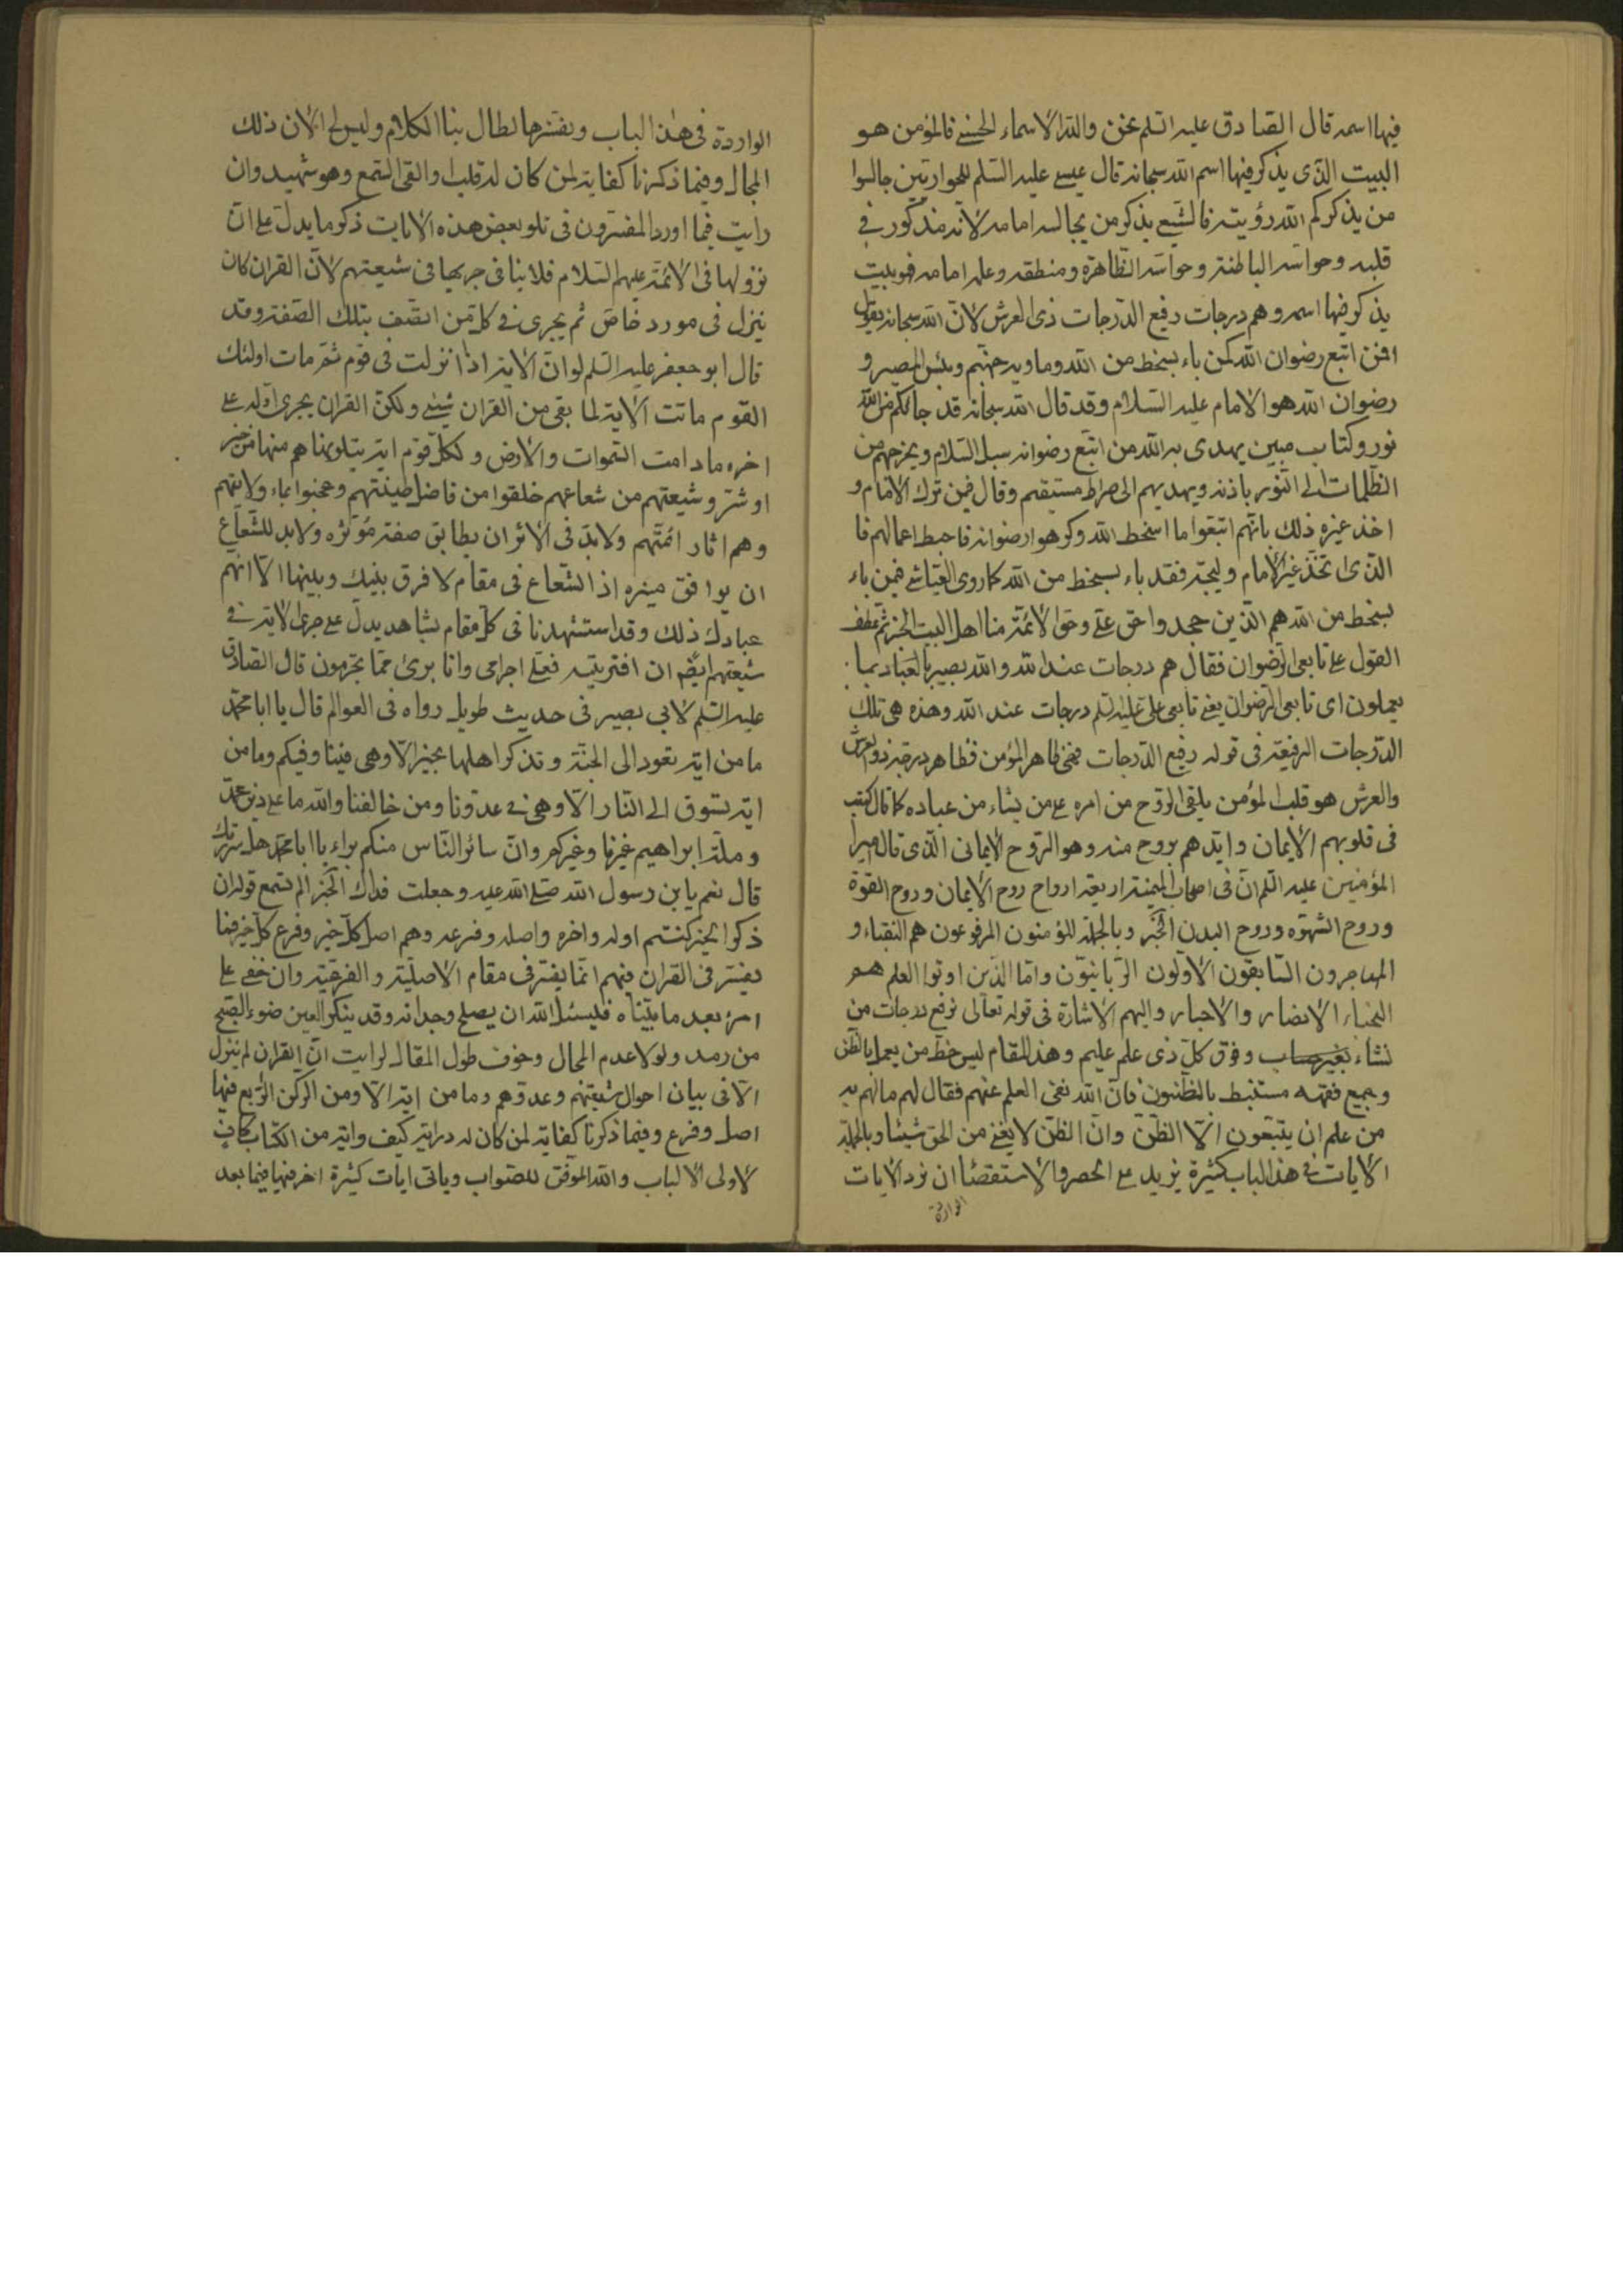 فيها اسمه قال الصادق عليه السلم نحن والله الاسماء الحسنى فالمؤمن هو
البيت الذى يذكر فيها اسم الله سبحانه قال عيسى عليه السلم للحواريين جالسوا
من يذكركم الله رؤيته فالشيعى يذكر من يجالسه امامه لانه مذكور فى
قلبه وحواسه الباطنة وحواسه الظاهرة ومنطقه وعلمه امامه فهو بيت
يذكر فيها اسمه وهم درجات رفيع الدرجات ذى العرش لان الله سبحانه يقول
افمن اتبع رضوان الله كمن باء بسخط من الله ومأويه جهنم وبئس المصير و
رضوان الله هو الامام عليه السلام وقد قال الله سبحانه قد جاءكم من الله
نور وكتاب مبين يهدى به الله من اتبع رضوانه سبل السلام ويخرجهم من
الظلمات الى النور باذنه ويهديهم الى صراط مستقيم وقال فيمن ترك الامام و
اخذ غيره ذلك بانهم اتبعوا ما اسخط الله وكرهوا رضوانه فاحبط اعمالهم فا
الذى اتخذ غير الامام وليجة فقد باء بسخط من الله كما روى العياشى فيمن باء
بسخط من الله هم الذين جحدوا حق على وحق الائمة منا اهل البيت الخبر ثم عطف
القول على تابعى الرضوان فقال هم درجات عند الله والله بصير بالعباد بما
يعملون اى تابعى الرضوان يعنى تابعى على عليه السلم درجات عند الله وهذه هى تلك
الدرجات الرفيعة فى قوله رفيع الدرجات فهى ظاهر المؤمن فظاهره درجة ذو العرش
والعرش هو قلب المؤمن يلقى الروح من امره على من يشاء من عباده كما قال كتب
فى قلوبهم الايمان وايدهم بروح منه وهو الروح الايمانى الذى قال امير
المؤمنين عليه السلم ان فى اصحاب الميمنة اربعة ارواح روح الايمان وروح القوة
وروح الشهوة وروح البدن الخبر وبالجملة المؤمنون المرفوعون هم النقباء و
المهاجرون السابقون الاولون الربانيون واما الذين اوتوا العلم هم
النجباء الانصار والاحبار واليهم الاشارة فى قوله تعالى نرفع درجات من
نشاء بغير حساب وفوق كل ذى علم عليم وهذا المقام ليس حظ من يعمل بالظن
وجميع فقهه مستنبط بالظنون فان الله نفى العلم عنهم فقال لهم مالهم به
من علم ان يتبعون الا الظن وان الظن لا يغنى من الحق شيئا وبالجملة
الايات فى هذا الباب كثيرة يزيد على الحصر والاستقصاا ان نرد الايات
الواردة
الواردة فى هذا الباب ونفسرها لطال بنا الكلام وليس لى الان ذلك
المجال وفيما ذكرنا كفاية لمن كان له قلب او القى السمع وهو شهيد وان
رايت فيما اورد المفسرون فى تلو بعض هذه الايات ذكر ما يدل على ان
نزولها فى الائمة عليهم السلام فلا ينافى جريها فى شيعتهم لان القران كان
ينزل فى مورد خاص ثم يجرى فى كل من اتصف بتلك الصفة وقد
قال ابو جعفر عليه السلم لو ان الاية اذا نزلت فى قوم ثم مات اولئك
القوم ماتت الاية لما بقى من القران شيئ ولكن القران يجرى اوله على
اخره ما دامت السموات والارض ولكل قوم اية يتلونها هم منها من خير
او شر وشيعتهم من شعاعهم خلقوا من فاضل طينتهم وعجنوا بماء ولايتهم
وهم اثار ائمتهم ولابد فى الاثر ان يطابق صفة مؤثره ولابد للشعاع
ان يوافق منيره اذ الشعاع فى مقام لا فرق بينك وبينها الا انهم
عبادك ذلك وقد استشهدنا فى كل مقام بشاهد يدل على جرى الاية فى
شيعتهم ايضا ان افتريته فعلى اجرامى وانا برئ مما تجرمون قال الصادق
عليه السلم لابى بصير فى حديث طويل رواه فى العوالم قال يا ابا محمد
ما من اية تعود الى الجنة وتذكر اهلها بخير الا وهى فينا وفيكم وما من
اية تسوق الى النار الا وهى فى عدونا ومن خالفنا والله ما على دين محمد
وملة ابراهيم غيرنا وغيركم وان سائر الناس منكم براء يا ابا محمد هل سررتك
قال نعم يابن رسول الله صلى الله عليه وجعلت فداك الخبر الم تسمع قوله ان
ذكر الخير كنتم اوله واخره واصله وفرعه وهم اصل كل خير وفرع كل خير فما
يفسر فى القران فيهم انما يفسر فى مقام الاصلية والفرعية وان خفى على
امرئ بعد ما بيناه فليسئل الله ان يصلح وجدانه وقد ينكر العين ضوء الصبح
من رمد ولولا عدم المجال وخوف طول المقال لرايت ان القران لم ينزل
الا فى بيان احوال شيعتهم وعدوهم وما من اية الا ومن الركن الرابع فيها
اصل وفرع وفيما ذكرنا كفاية لمن كان له دراية كيف واية من الكتاب كاف
لاولى الالباب والله الموفق للصواب وياتى ايات كثيرة اخر فيها فيما بعد